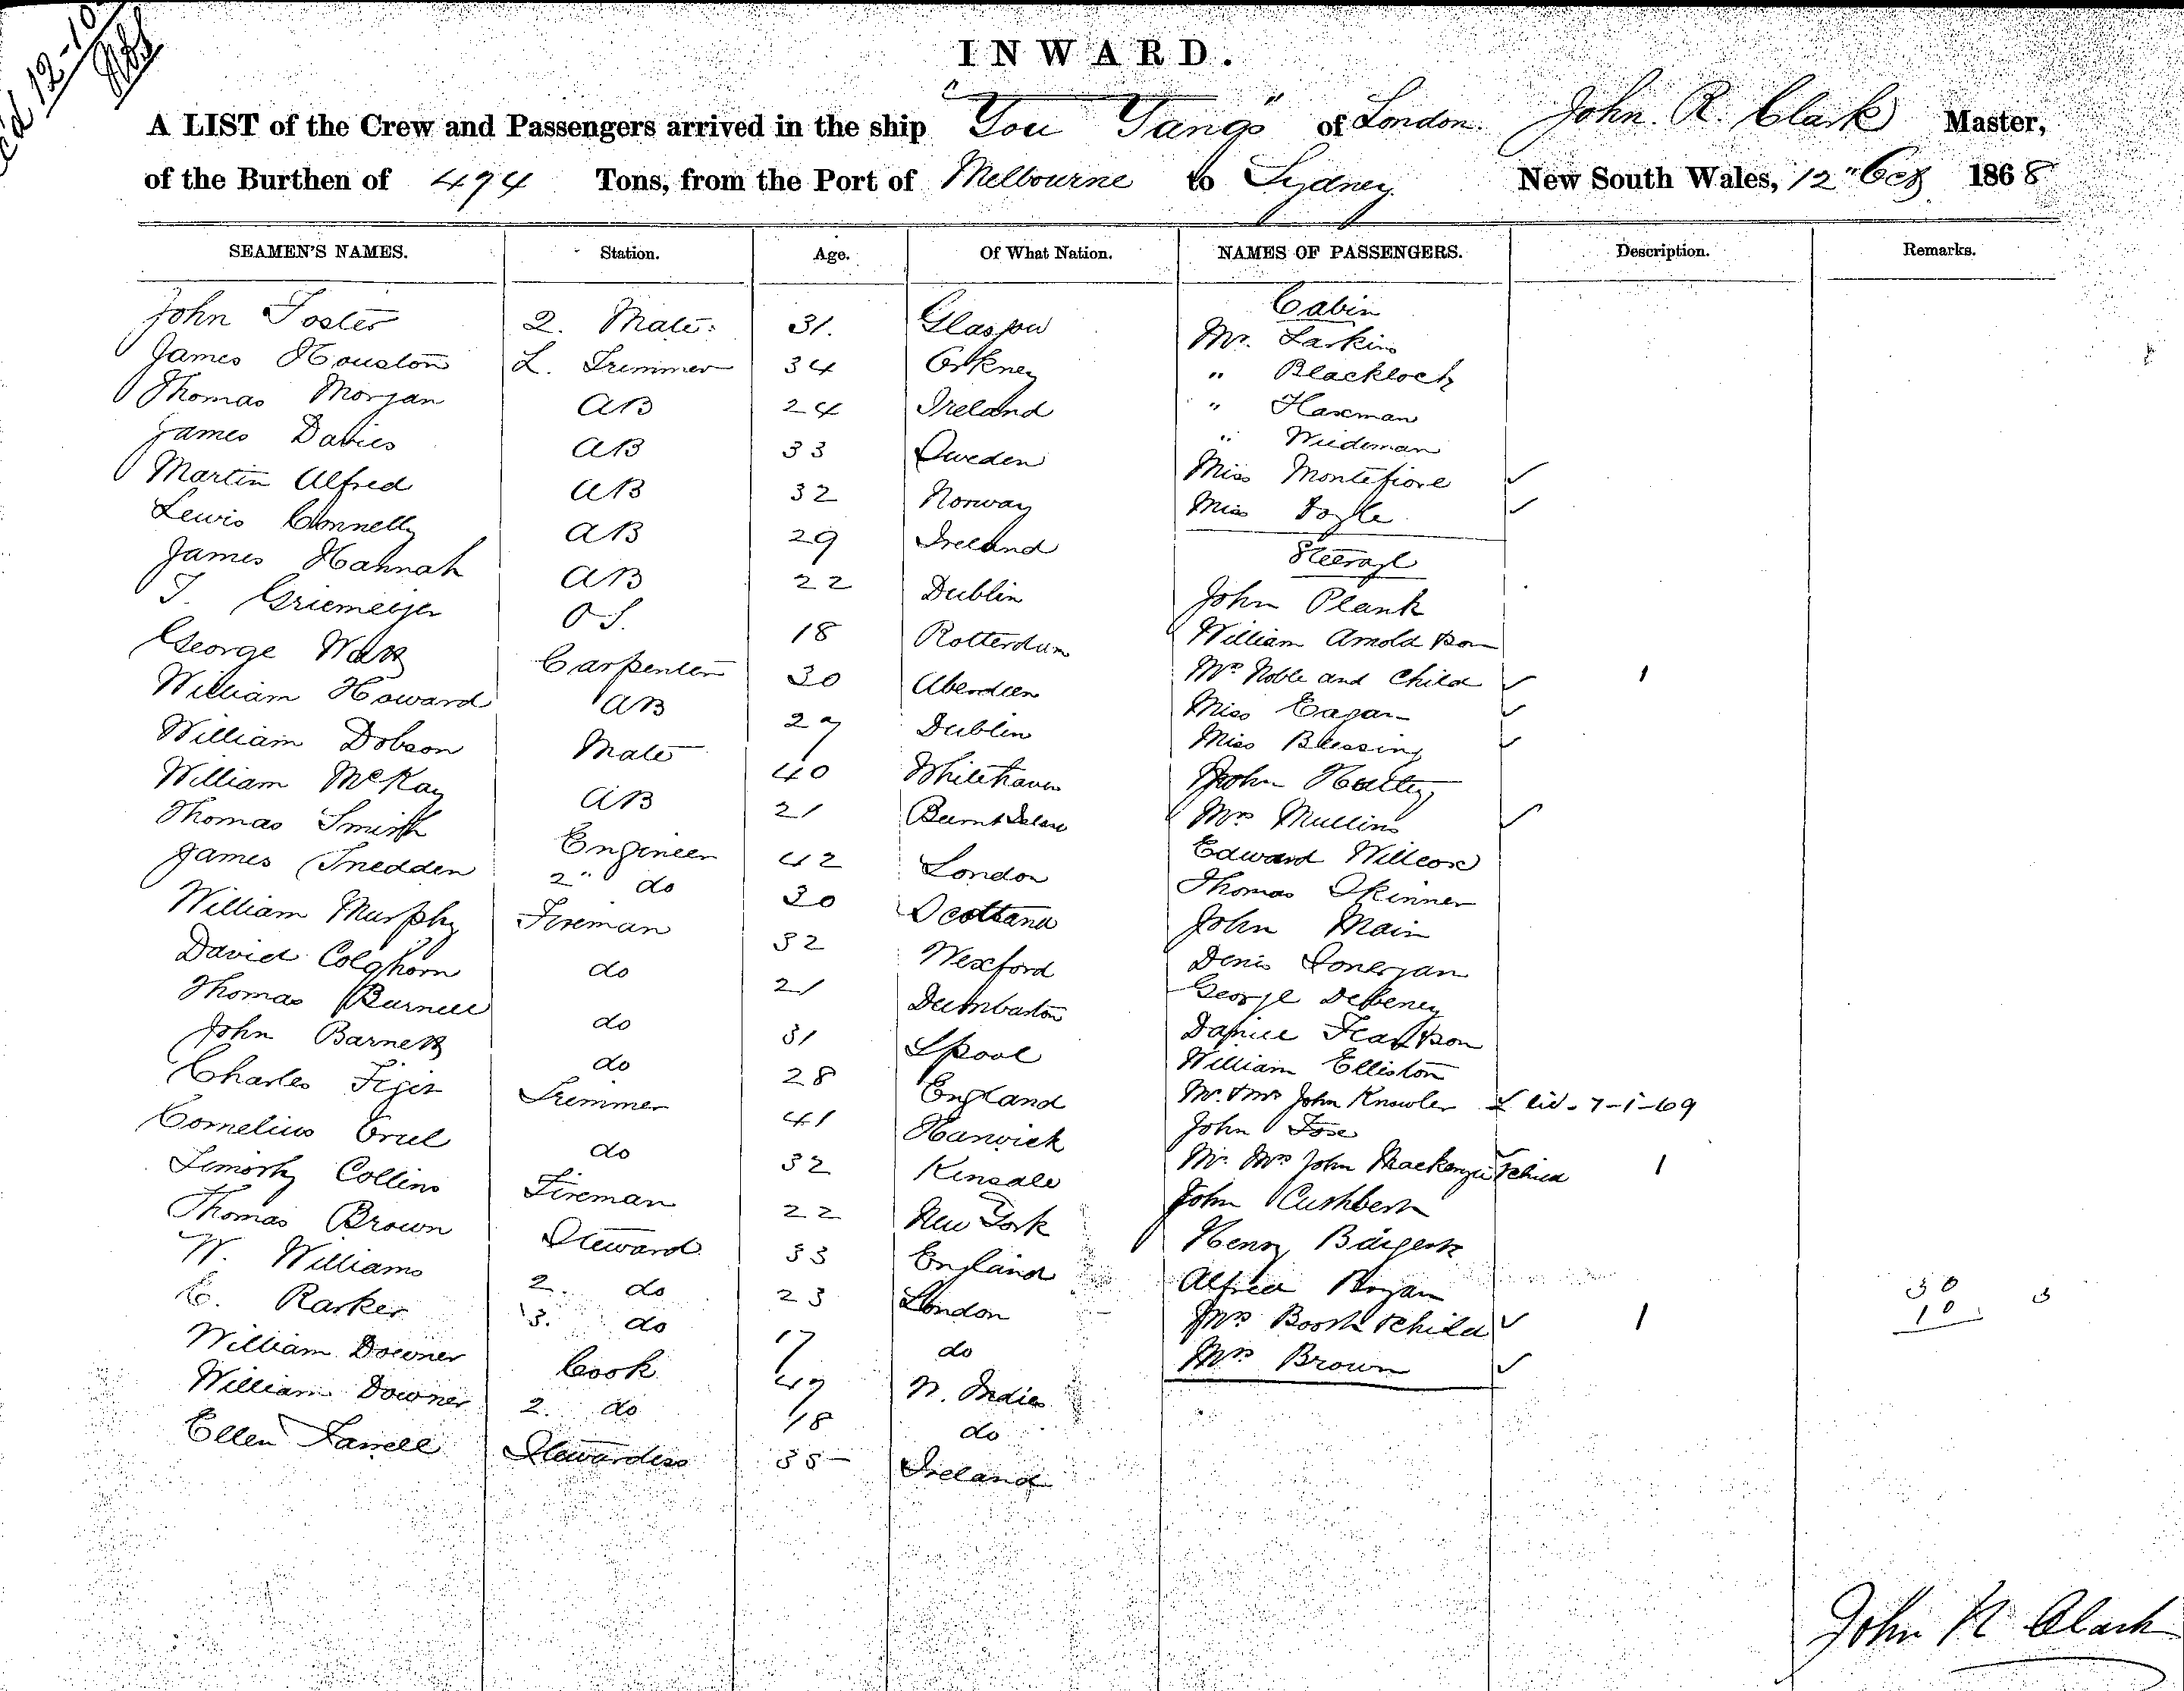 INWARD.
A LIST of the Crew and Passengers arrived in the ship "You Yangs" of London. John. R. Clark Master,
of the Burthen of 494 Tons, from the Port of Melbourne to Sydney New South Wales, 12" Oct 1868
SEAMEN'S NAMES. Station. Age. Of What Nation. NAMES OF PASSENGERS. Description. Remarks.
Cabin
John Foster 2. Mate. 31. Glasgow Mr. Larkins
James Houston L. Trimmer 34 Orkney " Blacklock
Thomas Morgan AB 24 Ireland " Haxman
James Davies AB 33 Sweden " Wiedeman
Martin Alfred AB 32 Norway Miss Montefiore ✓
Lewis Connelly AB 29 Ireland Miss Foyle ✓
James Hannah AB 22 Dublin Steerage
T. Griemeijer O S. 18 Rotterdam John Plank
George Watt Carpenter 30 Aberdeen William Arnold
William Howard AB 27 Dublin Mrs Noble and Child ✓ 1
William Dobson Mate 40 Whitehaven Miss Eagar ✓
William McKay AB 21 Miss Blessing ✓
Thomas Smith Engineer 42 London John
James Snedden 2" do 30 Scotland Mrs Mullins ✓
William Murphy Fireman 32 Wexford Edward Willcox
David Colghorn do 21 Dumbarton Thomas Skinner
Thomas Burnell do 31 Lpool John Main
John Barnett do 28 England Denis Lonergan
Charles Trimmer 41 Harwich George Debeney
Cornelius Cruel do 32 Kinsale
Timothy Collins Fireman 22 New York William Elliston
Thomas Brown Steward 33 England Mr. & Mrs John Knowler ✓ 7-1-69
W. Williams 2. do 23 London John Fox
E. Rarker 3. do 17 do Mr. Mrs John Mackenzie & child ✓ 1
William Downer Cook 47 W. Indies John Cuthbert
William Downer 2. do 18 do Henry
Ellen Farrell Stewardess 35 Ireland Alfred Bryan 30
Mrs Booth & child ✓ 1 10 3
Mrs Brown ✓
John R Clark